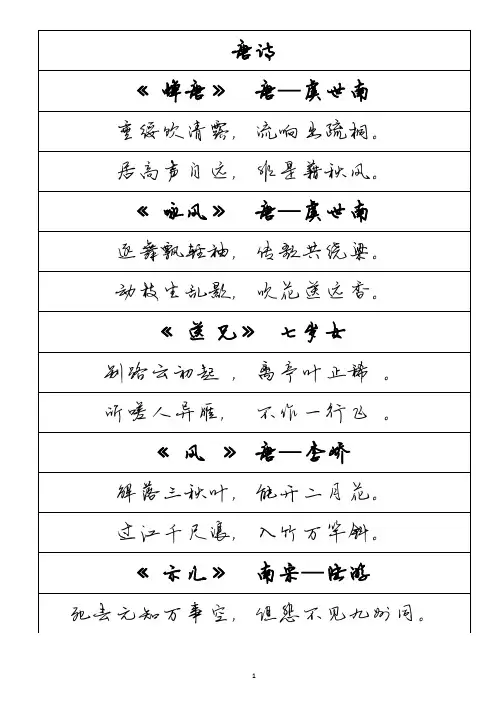 唐诗
《 蝉唐》 唐—虞世南
垂绥饮清露，流响出疏桐。
居高声自远，非是藉秋风。
《 咏风》 唐—虞世南
逐舞飘轻袖，传歌共绕梁。
动枝生乱影，吹花送远香。
《 送兄》 七岁女
别路云初起 ，离亭叶正稀 。
所嗟人异雁， 不作一行飞 。
《 风 》 唐—李峤
解落三秋叶，能开二月花。
过江千尺浪，入竹万竿斜。
《 示儿》 南宋—陆游
死去元知万事空，但悲不见九州同。
1